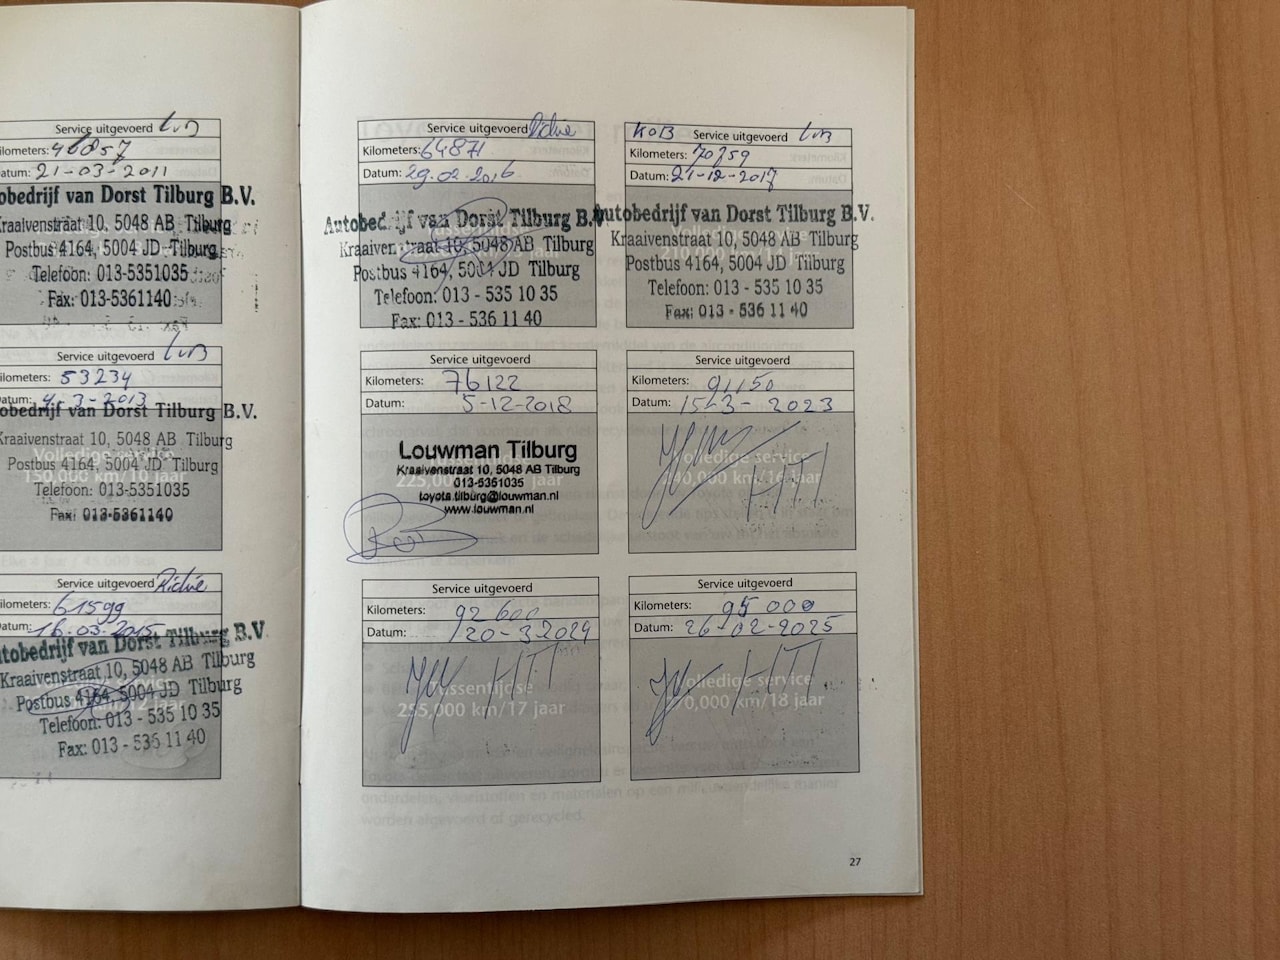 Service uitgevoerd LvB
ilometers: 46857
Datum: 21-03-2011
obedrijf van Dorst Tilburg B.V.
Kraaivenstraat 10, 5048 AB Tilburg
Postbus 4164, 5004 JD Tilburg
Telefoon: 013-5351035
Fax: 013-5361140
Service uitgevoerd LvB
ilometers: 53234
atum: 4-3-2013
obedrijf van Dorst Tilburg B.V.
Kraaivenstraat 10, 5048 AB Tilburg
Postbus 4164, 5004 JD Tilburg
Volledige service
150,000 km/10 jaar
Telefoon: 013-5351035
Fax: 013-5361140
Service uitgevoerd Richie
ilometers: 61599
atum: 16.03.2015
tobedrijf van Dorst Tilburg B.V.
Kraaivenstraat 10, 5048 AB Tilburg
Postbus 4164, 5004 JD Tilburg
Telefoon: 013 - 535 10 35
Fax: 013 - 536 11 40
Service uitgevoerd Richie
Kilometers: 64871
Datum: 29.02.2016
Autobedrijf van Dorst Tilburg B.V.
Kraaivenstraat 10, 5048 AB Tilburg
Postbus 4164, 5004 JD Tilburg
Telefoon: 013 - 535 10 35
Fax: 013 - 536 11 40
KOB Service uitgevoerd LvB
Kilometers: 70759
Datum: 21-12-2017
Autobedrijf van Dorst Tilburg B.V.
Volledige service
Kraaivenstraat 10, 5048 AB Tilburg
210,000 km/14 jaar
Postbus 4164, 5004 JD Tilburg
Telefoon: 013 - 535 10 35
Fax: 013 - 536 11 40
Service uitgevoerd
Kilometers: 76122
Datum: 5-12-2018
Louwman Tilburg
Kraaivenstraat 10, 5048 AB Tilburg
013-5351035
toyota.tilburg@louwman.nl
www.louwman.nl
Service uitgevoerd
Kilometers: 91150
Datum: 15-3-2023
Volledige service
HTI
Service uitgevoerd
Kilometers: 92 600
Datum: 20-3-2024
HTI
Tussentijdse
255,000 km/17 jaar
Service uitgevoerd
Kilometers: 95 000
Datum: 26-02-2025
HTI
Volledige service
270,000 km/18 jaar
27